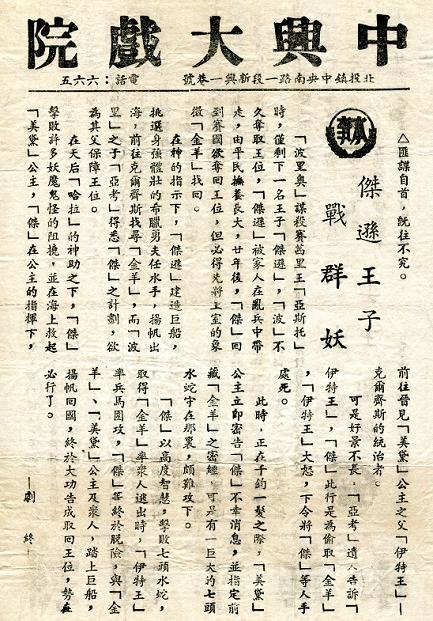 中興大戲院
北投鎮中央南路一段新興一巷號　電話：六六五
△匪諜自首，既往不究。
傑遜王子
戰群妖
「波里奧」謀殺賽薩里王「亞斯托」
時，僅剩下一名王子「傑遜」，「波」不
久奪取王位，「傑遜」被家人在亂兵中帶
走，由平民撫養長大，廿年後，「傑」回
到賽國欲奪回王位，但必得先將王室的象
徵「金羊」找回。
在神的指示下，「傑遜」建造巨船，
挑選身強體壯的希臘勇夫任水手，揚帆出
海，前往克爾齊斯找尋「金羊」，而「波
里」之子「亞考」得悉「傑」之計劃，欲
為其父保障王位。
在天后「哈拉」的神助之下，「傑」
擊敗許多妖魔鬼怪的阻撓，並在海上救起
「美黛」公主，「傑」在公主的指揮下，
前往晉見「美黛」公主之父「伊特王」—
克爾齊斯的統治者。
可是好景不長，「亞考」遣人告訴「
伊特王」，「傑」此行是為偷取「金羊」
，「伊特王」大怒，下令將「傑」等人手
處死。
此時，正在千鈞一髮之際，「美黛」
公主立即密告「傑」不幸消息，並指定前
藏「金羊」之密經，可是有一巨大的七頭
水蛇守在那裏，頗難攻下。
「傑」以高度智慧，擊敗七頭水蛇，
取得「金羊」率衆人逃出時，「伊特王」
率兵馬圍攻，「傑」等終於脫險，與「金
羊」、「美黛」公主及衆人，踏上巨船，
揚帆回國，終於大功告成取回王位，勢在
必行了。
—劇　終—